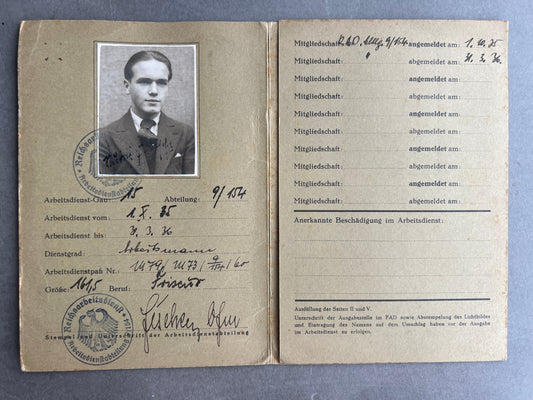 Reichsarbeitsdienst
Arbeitsdienst-Gau: 15 Abteilung: 9/154
Arbeitsdienst vom: 1. X. 35
Arbeitsdienst bis: 31. 3. 36
Dienstgrad: Arbeitsmann
Arbeitsdienstpaß Nr.:
Größe: 161,5 Beruf: Friseur
Reichsarbeitsdienst
Arbeitsdienstabteilung
Stempel und Unterschrift der Arbeitsdienstabteilung
Mitgliedschaft: R.A.D. Abtlg. 9/154 angemeldet am: 1. 10. 35
Mitgliedschaft: " abgemeldet am: 31. 3. 36.
Mitgliedschaft: angemeldet am:
Mitgliedschaft: abgemeldet am:
Mitgliedschaft: angemeldet am:
Mitgliedschaft: abgemeldet am:
Mitgliedschaft: angemeldet am:
Mitgliedschaft: abgemeldet am:
Mitgliedschaft: angemeldet am:
Mitgliedschaft: abgemeldet am:
Anerkannte Beschädigung im Arbeitsdienst:
Ausfüllung der Seiten II und V.
Unterschrift der Ausgabestelle im FAD sowie Abstempelung des Lichtbildes
und Eintragung des Namens auf dem Umschlag haben vor der Ausgabe
im Arbeitsdienst zu erfolgen.